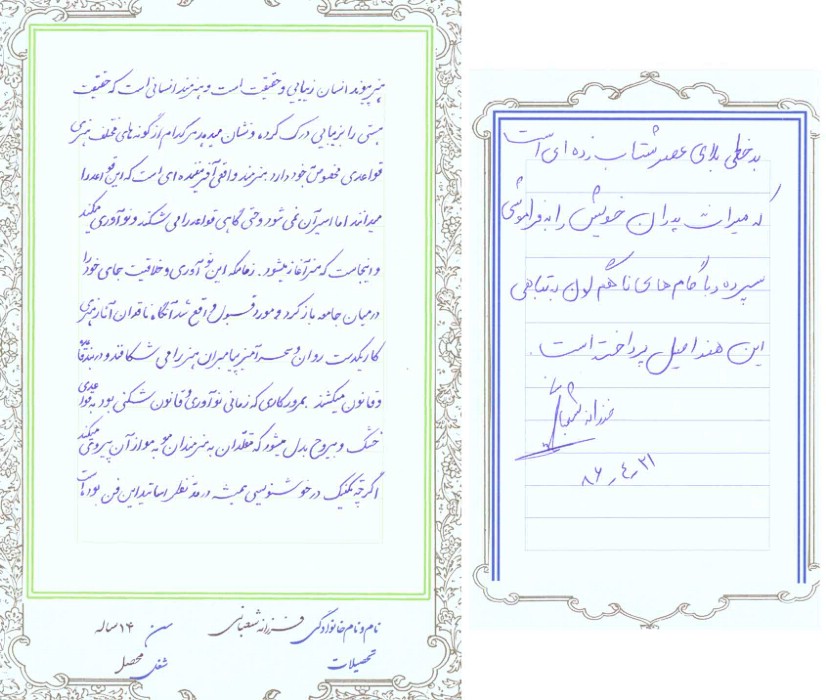 هنر پیوند انسان زیبایی و حقیقت است و هنرمند انسانی است که حقیقت
هستی را بزیبایی درک کرده و نشان میدهد هر کدام از گونه های مختلف هنری
قواعدی مخصوص خود دارد هنرمند واقعی آفریننده ای است که این قواعد را
میداند اما اسیر آن نمی شود و حتی گاهی قواعد را می شکند و نوآوری میکند
و اینجاست که هنر آغاز میشود. زمانیکه این نوآوری و خلاقیت جای خود را
در میان جامعه باز کرد و مورد قبول واقع شد آنگاه ناقدان آثار هنری
کار یکدست روان و سحرآمیز پیامبران هنر را می شکافند و در بند قاعده
و قانون میکشند بمرور کاری که زمانی نوآوری و قانون شکنی بود به قواعدی
خشک و بیروح بدل میشود که مقلدان به هنرمندان مو به مو از آن پیروی میکنند
اگر چه تکنیک در خوشنویسی همیشه در مد نظر اساتید این فن بوده است
نام و نام خانوادگی فرزانه شعبانی سن ۱۴ ساله
تحصیلات شغل محصل
بدخطی بلای عصر شتاب زده ای است
که میراث پدران خویش را به فراموشی
سپرده و با گام های ناهمگون به تباهی
این هنر اصیل پرداخته است.
فرزانه شعبانی
۸۶٫۴٫۲۱